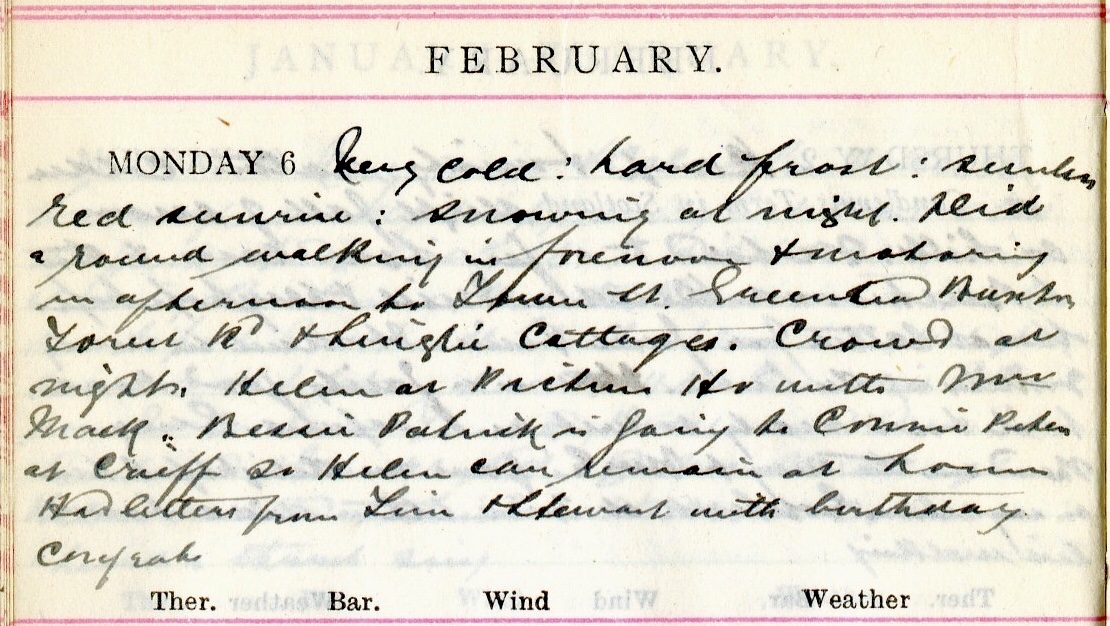 FEBRUARY.
MONDAY 6 Very cold: hard frost: sunless
red sunrise: snowing at night. Did
a round walking in forenoon & motoring
in afternoon to Town St. Buxton
Forest Rd & Cottages. Crowd at
night. Helen at Picture Ho with Mrs
Mack.. Bessie Patrick is going to Connie
at Crieff so Helen can remain at home
Had letters from Jim & Stewart with birthday
congrats
Ther. Bar. Wind Weather